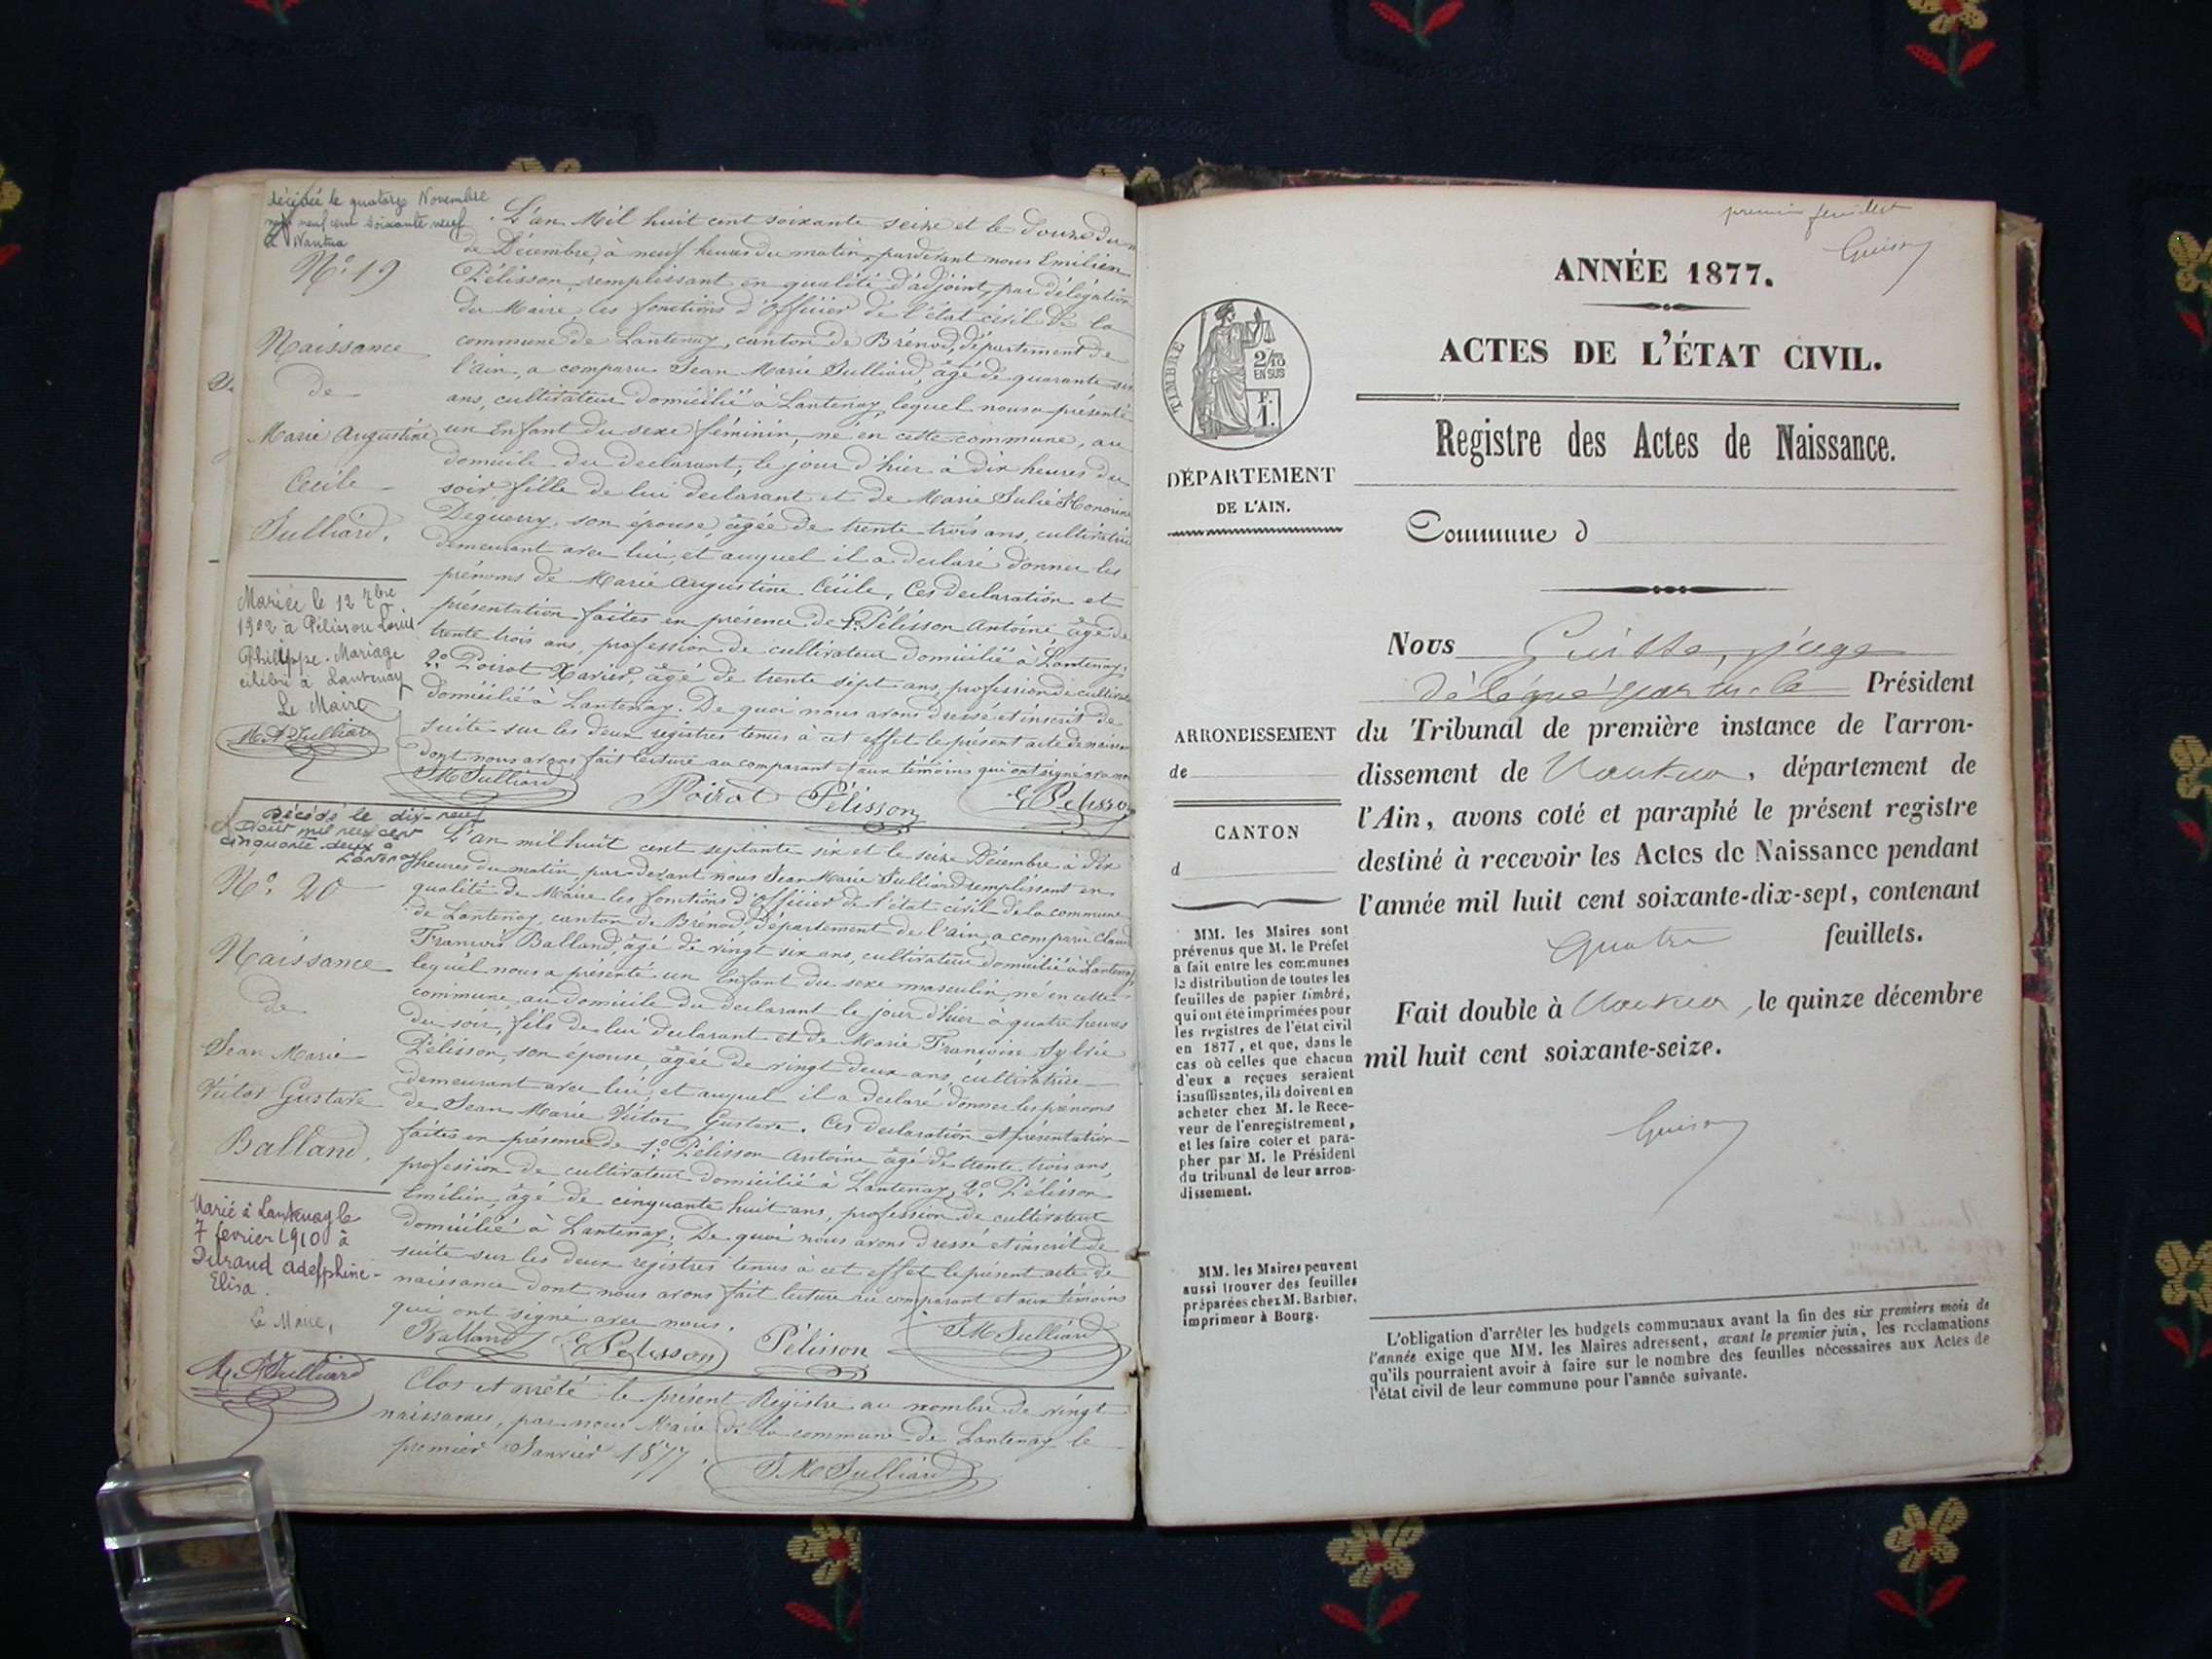 décédée le quatorze Novembre
mil neuf cent soixante neuf
à Nantua
N° 19
Naissance
de
Marie Augustine
Cécile
Julliard.
Mariée le 12 7bre
1902 à Pélisson Louis
Philippe. Mariage
célébré à Lantenay
Le Maire
M A Julliard
L'an Mil huit cent soixante seize et le douze du
de Décembre, à neuf heures du matin, pardevant nous Emilien
Pélisson, remplissant en qualité d'adjoint, par délégation
du Maire, les fonctions d'officier de l'état civil de la
commune de Lantenay, canton de Brénod, département de
l'ain, a comparu Jean Marie Julliard, âgé de quarante six
ans, cultivateur domicilié à Lantenay, lequel nous a présenté
un Enfant du sexe féminin, né en cette commune, au
domicile du declarant, le jour d'hier à dix heures du
soir, fille de lui declarant et de Marie Julie Honorine
Deguerry, son épouse, âgée de trente trois ans, cultivatrice
demeurant avec lui, et auquel il a declaré donner les
prénoms de Marie Augustine Cécile, Ces declaration et
présentation faites en présence de 1° Pélisson Antoine âgé de
trente trois ans, profession de cultivateur domicilié à Lantenay,
2° Poirot Xavier, âgé de trente sept ans, profession de cultivate
domicilié à Lantenay. De quoi nous avons dressé et inscrit de
suite sur les deux registres tenus à cet effet le présent acte de naissan
dont nous avons fait lecture au comparant et aux témoins qui ont signé avec nous
JM Julliard Poirot Pélisson E Pelisso
Décédé le dix-neuf
Août mil neuf cent
cinquante-deux à
Lantenay
N° 20
Naissance
de
Jean Marie
Victor Gustave
Balland.
Marié à Lantenay le
7 fevrier 1910 à
Durand Adelphine-
Elisa.
Le Maire,
M A Julliard
L'an mil huit cent septante six et le seize Décembre à dix
heures du matin, par devant nous Jean Marie Julliard remplissant en
qualité de Maire les fonctions d'officier de l'état civil de la commune
de Lantenay, canton de Brénod, département de l'ain, a comparu Claude
François Balland, âgé de vingt six ans, cultivateur domicilié à Lantenay
lequel nous a présenté un Enfant du sexe masculin, né en cette
commune, au domicile du declarant le jour d'hier à quatre heures
du soir, fils de lui declarant et de Marie Françoise Sylvie
Pélisson, son épouse, âgée de vingt deux ans, cultivatrice
demeurant avec lui, et auquel il a declaré donner les prénoms
de Jean Marie Victor Gustave. Ces declaration et présentation
faites en présence de 1° Pélisson Antoine âgé de trente trois ans,
profession de cultivateur domicilié à Lantenay, 2° Pélisson
Emilien, âgé de cinquante huit ans, profession de cultivateur
domicilié à Lantenay. De quoi nous avons dressé et inscrit de
suite sur les deux registres tenus à cet effet le présent acte de
naissance dont nous avons fait lecture au comparant et aux témoins
qui ont signé avec nous.
Balland E Pelisson Pélisson JM Julliard
Clos et arrêté le présent Régistre au nombre de vingt
naissances, par nous Maire de la commune de Lantenay le
premier Janvier 1877.
JM Julliard
premier feuillet
ANNÉE 1877.
ACTES DE L'ÉTAT CIVIL.
Registre des Actes de Naissance.
Commune d
TIMBRE
2/10
EN SUS
F.
1.
DÉPARTEMENT
DE L'AIN.
ARRONDISSEMENT
de
CANTON
d
MM. les Maires sont
prévenus que M. le Préfet
a fait entre les communes
la distribution de toutes les
feuilles de papier timbré,
qui ont été imprimées pour
les registres de l'état civil
en 1877, et que, dans le
cas où celles que chacun
d'eux a reçues seraient
insuffisantes, ils doivent en
acheter chez M. le Rece-
veur de l'enregistrement,
et les faire coter et para-
pher par M. le Président
du tribunal de leur arron-
dissement.
MM. les Maires peuvent
aussi trouver des feuilles
préparées chez M. Barbier,
imprimeur à Bourg.
Nous juge
délégué par m. le Président
du Tribunal de première instance de l'arron-
dissement de Nantua, département de
l'Ain, avons coté et paraphé le présent registre
destiné à recevoir les Actes de Naissance pendant
l'année mil huit cent soixante-dix-sept, contenant
quatre feuillets.
Fait double à Nantua, le quinze décembre
mil huit cent soixante-seize.
L'obligation d'arrêter les budgets communaux avant la fin des six premiers mois de
l'année exige que MM. les Maires adressent, avant le premier juin, les réclamations
qu'ils pourraient avoir à faire sur le nombre des feuilles nécessaires aux Actes de
l'état civil de leur commune pour l'année suivante.